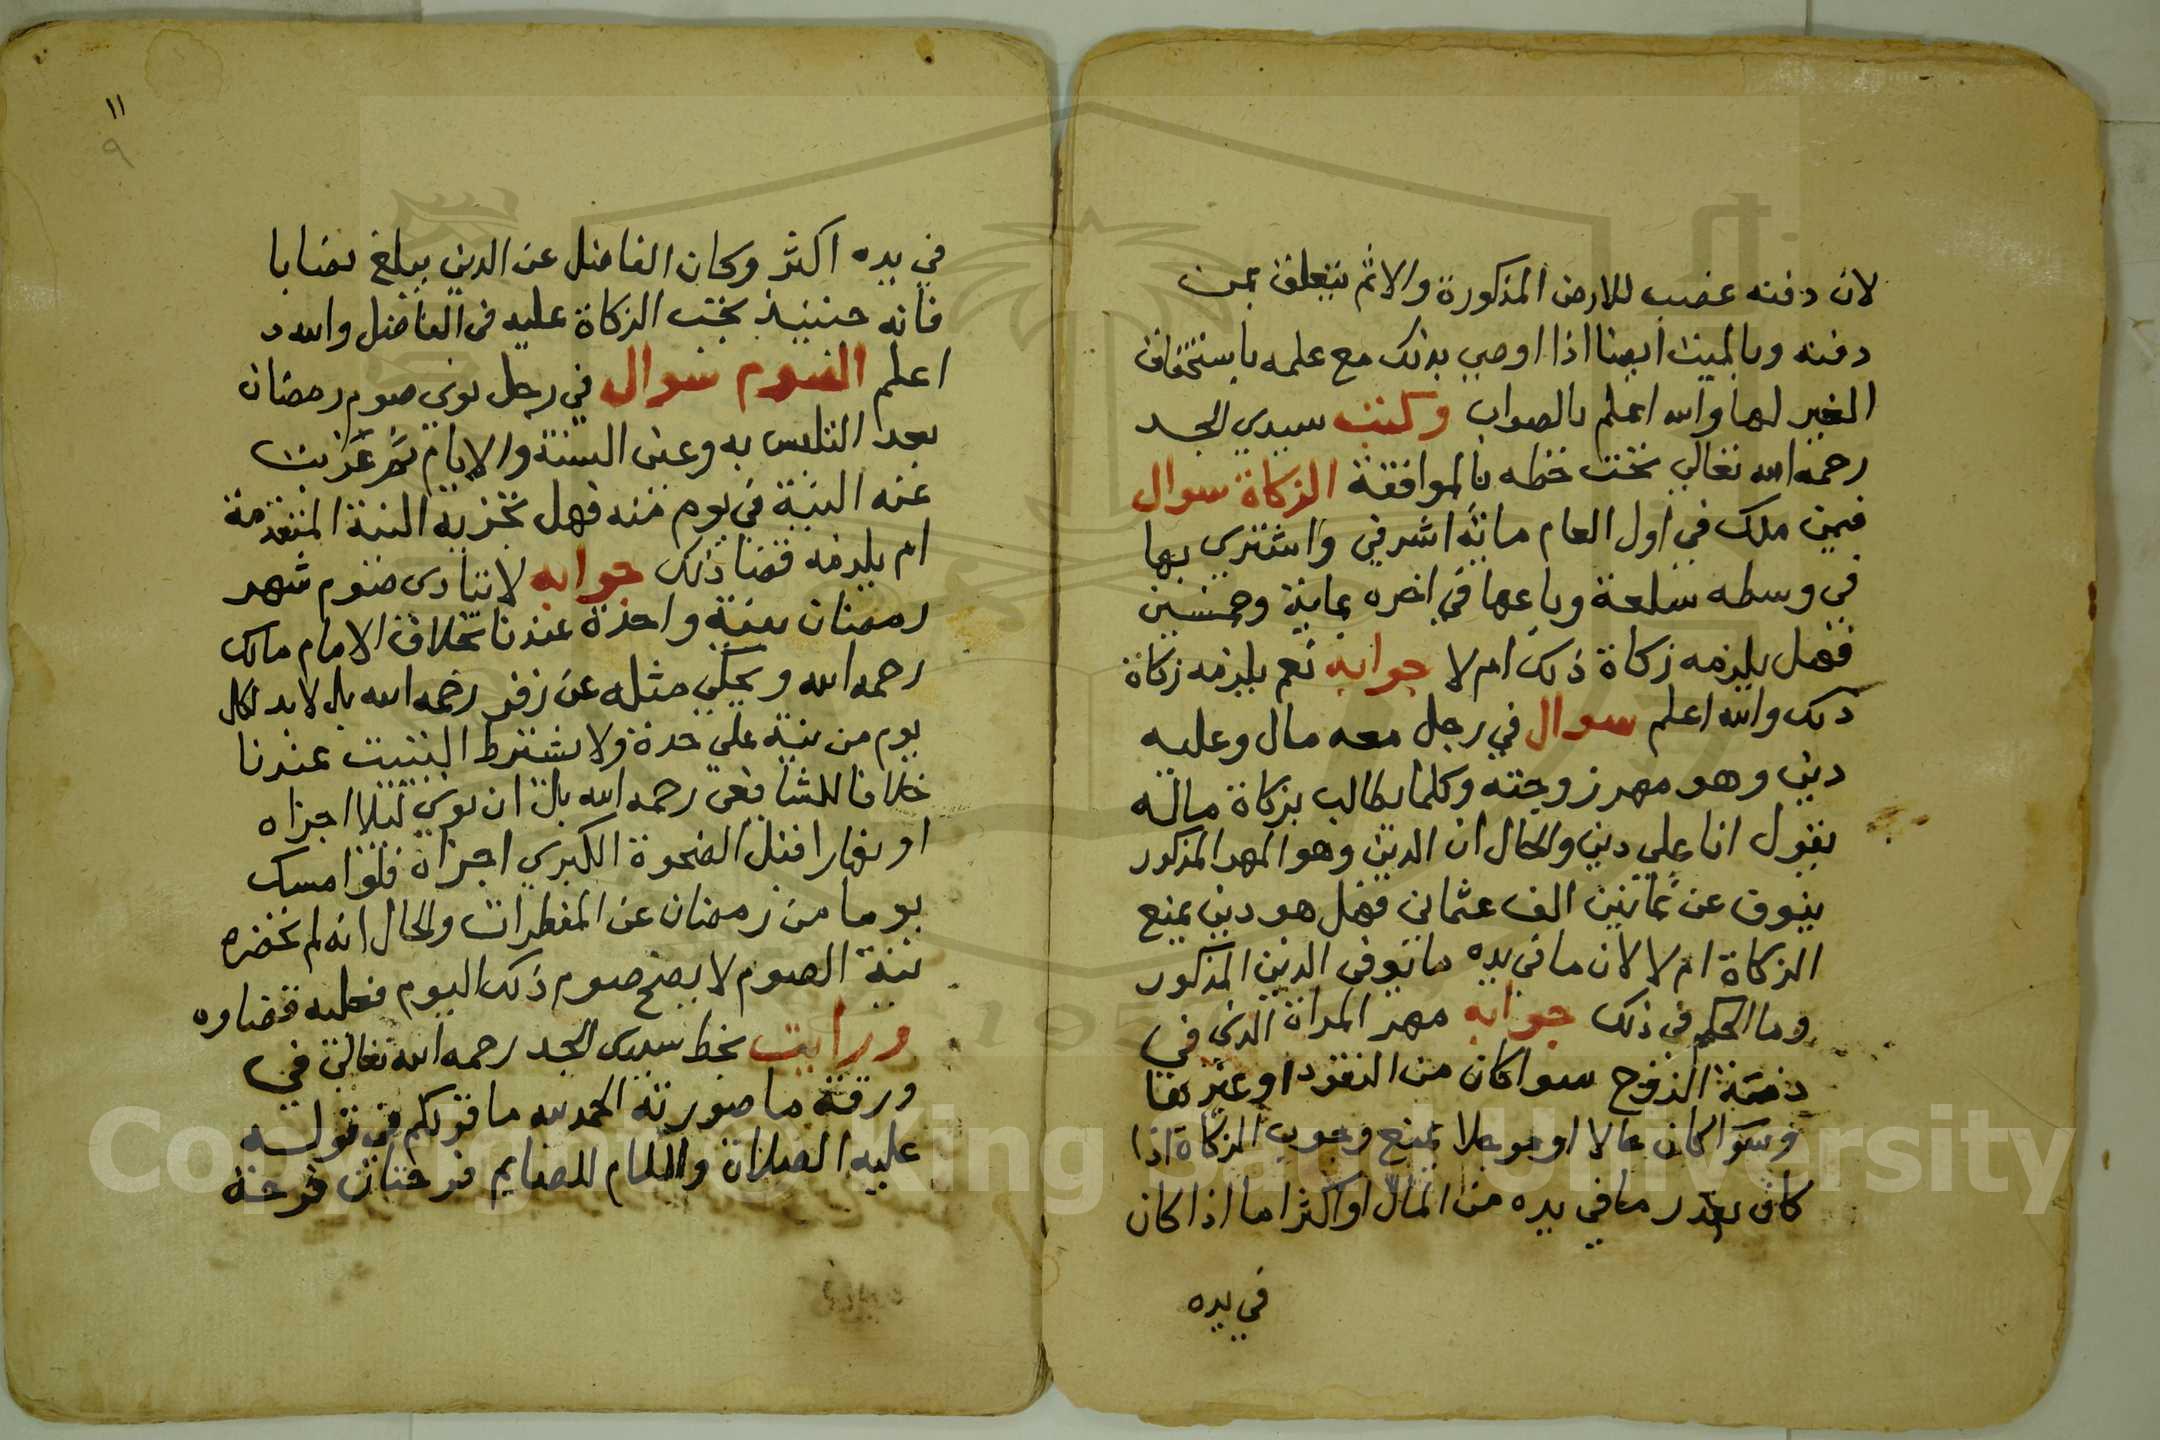 لان دفنه غصب للارض المذكورة والاثم يتعلق بمن
دفنه وبالميت ايضا اذا اوصي بذلك مع علمه باستحقاق
الغير لها والله اعلم بالصواب وكتب سيدي الجد
رحمه الله تعالي تحت خطه بالموافقة الزكاة سوال
فيمن ملك في اول العام مائة اشرفي واشتري بها
في وسطه سلعة وباعها في اخره بماية وخمسين
فهل يلزمه زكاة ذلك ام لا جوابه نعم يلزمه زكاة
ذلك والله اعلم سوال في رجل معه مال وعليه
دين وهو مهر زوجته وكلما يطالب بزكاة ماله
يقول انا علي دين والحال ان الدين وهو المهر المذكور
ينوق عن ثمانين الف عثماني فهل هو دين يمنع
الزكاة ام لا لان ما في يده ما يوفي الدين المذكور
وما الحكم في ذلك جوابه مهر المراة الذي في
ذمة الزوج سوا كان من النقود او غيرها
وسوا كان حالا او موجلا يمنع وجوب الزكاة اذا
كان بقدر ما في يده من المال او اكثر اما اذا كان
في يده
١١
٩
في يده اكثر وكان الفاضل عن الدين يبلغ نصابا
فانه حينيذ تجب الزكاة عليه في الفاضل والله
اعلم الصوم سوال في رجل نوي صوم رمضان
بعد التلبس به وعين السنة والايام ثم عزبت
عنه النية في يوم منه فهل تجزيه النية المتقدمة
ام يلزمه قضا ذلك جوابه لا يتادى صوم شهر
رمضان بنية واحدة عندنا بخلاف الامام مالك
رحمه الله ويحكي مثله عن زفر رحمه الله بل لا بد لكل
يوم من نية علي حدة ولا يشترط التبييت عندنا
خلافا للشافعي رحمه الله بل ان نوي ليلا اجزاه
او نهارا قبل الضحوة الكبري اجزاه فلو امسك
يوما من رمضان عن المفطرات والحال انه لم تحضره
نية الصوم لا يصح صوم ذلك اليوم فعليه قضاوه
ورايت بخط سيدي الجد رحمه الله تعالي في
ورقة ما صورته الحمد لله ما قولكم في قوله
عليه الصلاة والسلام للصايم فرحتان فرحة